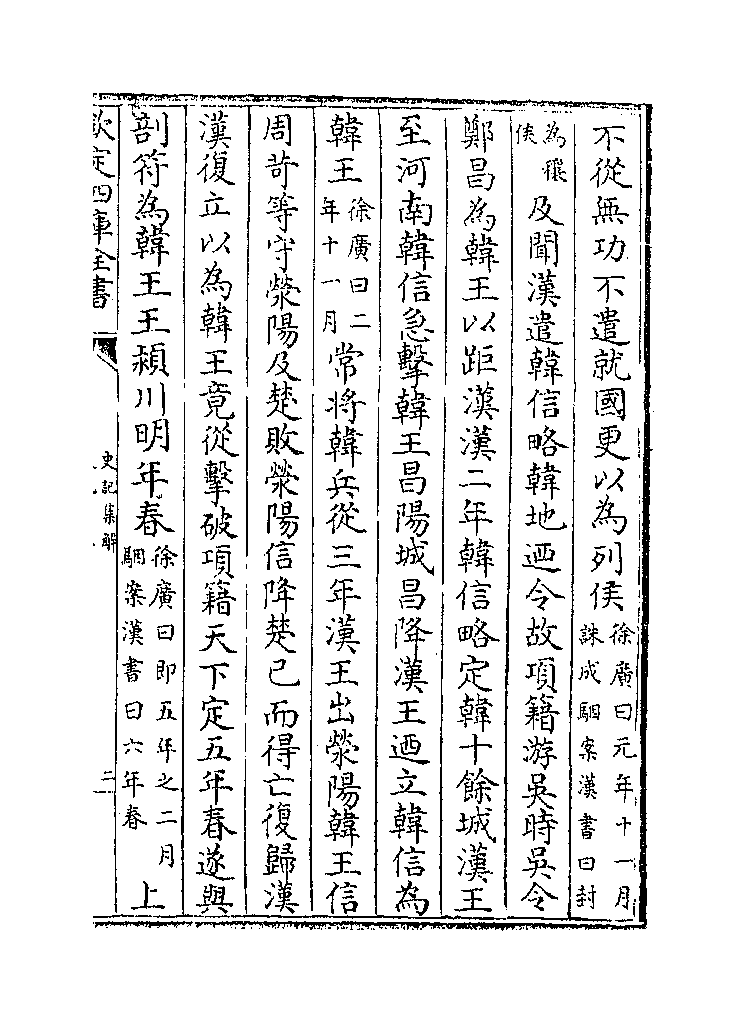 不從無功不遣就國更以為列侯徐廣曰元年十一月誅成駰案漢書曰封
為穰侯及聞漢遣韓信略韓地迺令故項籍游吳時吳令
鄭昌為韓王以距漢漢二年韓信略定韓十餘城漢王
至河南韓信急擊韓王昌陽城昌降漢王迺立韓信為
韓王徐廣曰二年十一月常將韓兵從三年漢王出滎陽韓王信
周苛等守滎陽及楚敗滎陽信降楚已而得亡復歸漢
漢復立以為韓王竟從擊破項籍天下定五年春遂與
剖符為韓王王潁川明年春徐廣曰即五年之二月駰案漢書曰六年春上
欽定四庫全書
史記集解
二